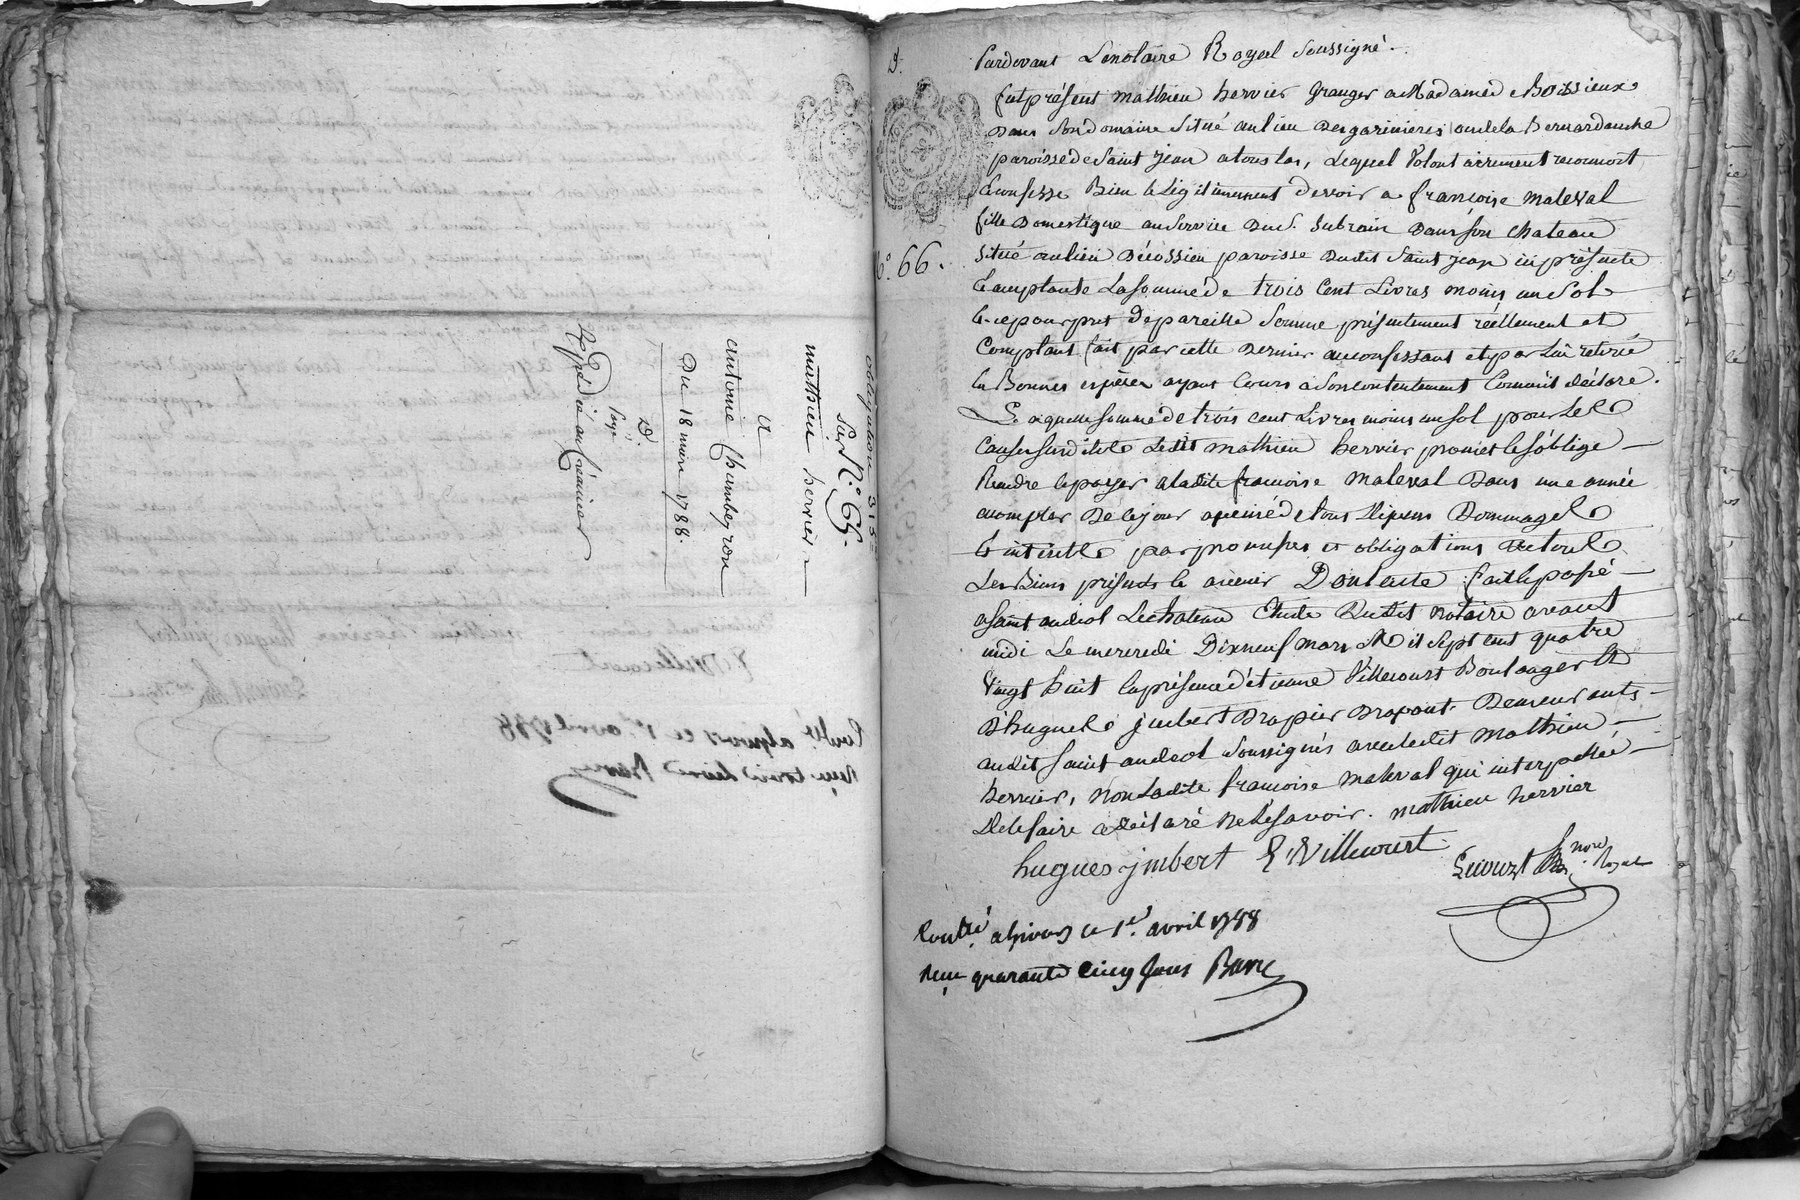 obligation 315
Sur N.° 65.
mathieu hervier
a
antoine Chambeyron
Du 18 mars 1788.
D.
Payé
Expédié au Créancier
D.
N.° 66.
Pardevant Le notaire Royal Soussigné.
fut présent mathieu hervier Granger de Madame de Boissieux
Dans Son domaine Situé au lieu des garinieres ou de la Bernardanche
paroisse de Saint jean a touslas, Lequel Volontairement reconnoit
& confesse Bien & Légitimement devoir a françoise maleval
fille Domestique au Service du S. Subrain Dans Son Chateau
Situé au lieu paroisse dudit Saint jean ici présente
& acceptante La Somme de trois Cent Livres moins un Sol
& ce pour pret De pareille Somme présentement réellement et
Comptant fait par cette derniere au confessant et par Lui retirée
En Bonnes espèces ayant Cours a Son contentement Comm'il déclare.
Laquelle Somme de trois cent Livres moins un Sol pour Les
Causes Susdites Ledit mathieu hervier promet & s'oblige
Rendre & payer a ladite francoise maleval Dans une année
a compter De ce jour a peine de tous Dépens Dommages
& intérêts par promesses et obligations de tous
Les Biens présents & avenir Dont acte fait & passé
a Saint andéol Le chateau Etude Dudit notaire avant
midi Le mercredi Dixneuf mars Mil Sept cent quatre
Vingt huit En présence d'étienne Villecourt Boulanger &
D'hugues jmbert Drapier Drapant Demeurants
audit Saint andeol Soussignés avec ledit mathieu
hervier, Non Ladite francoise maleval qui interpellée
De le faire a déclaré ne le Savoir. mathieu hervier
hugues jmbert E. Villecourt
n.re Royal
Controllé a givors ce 1er. avril 1788
Reçu quarante Cinq Sous